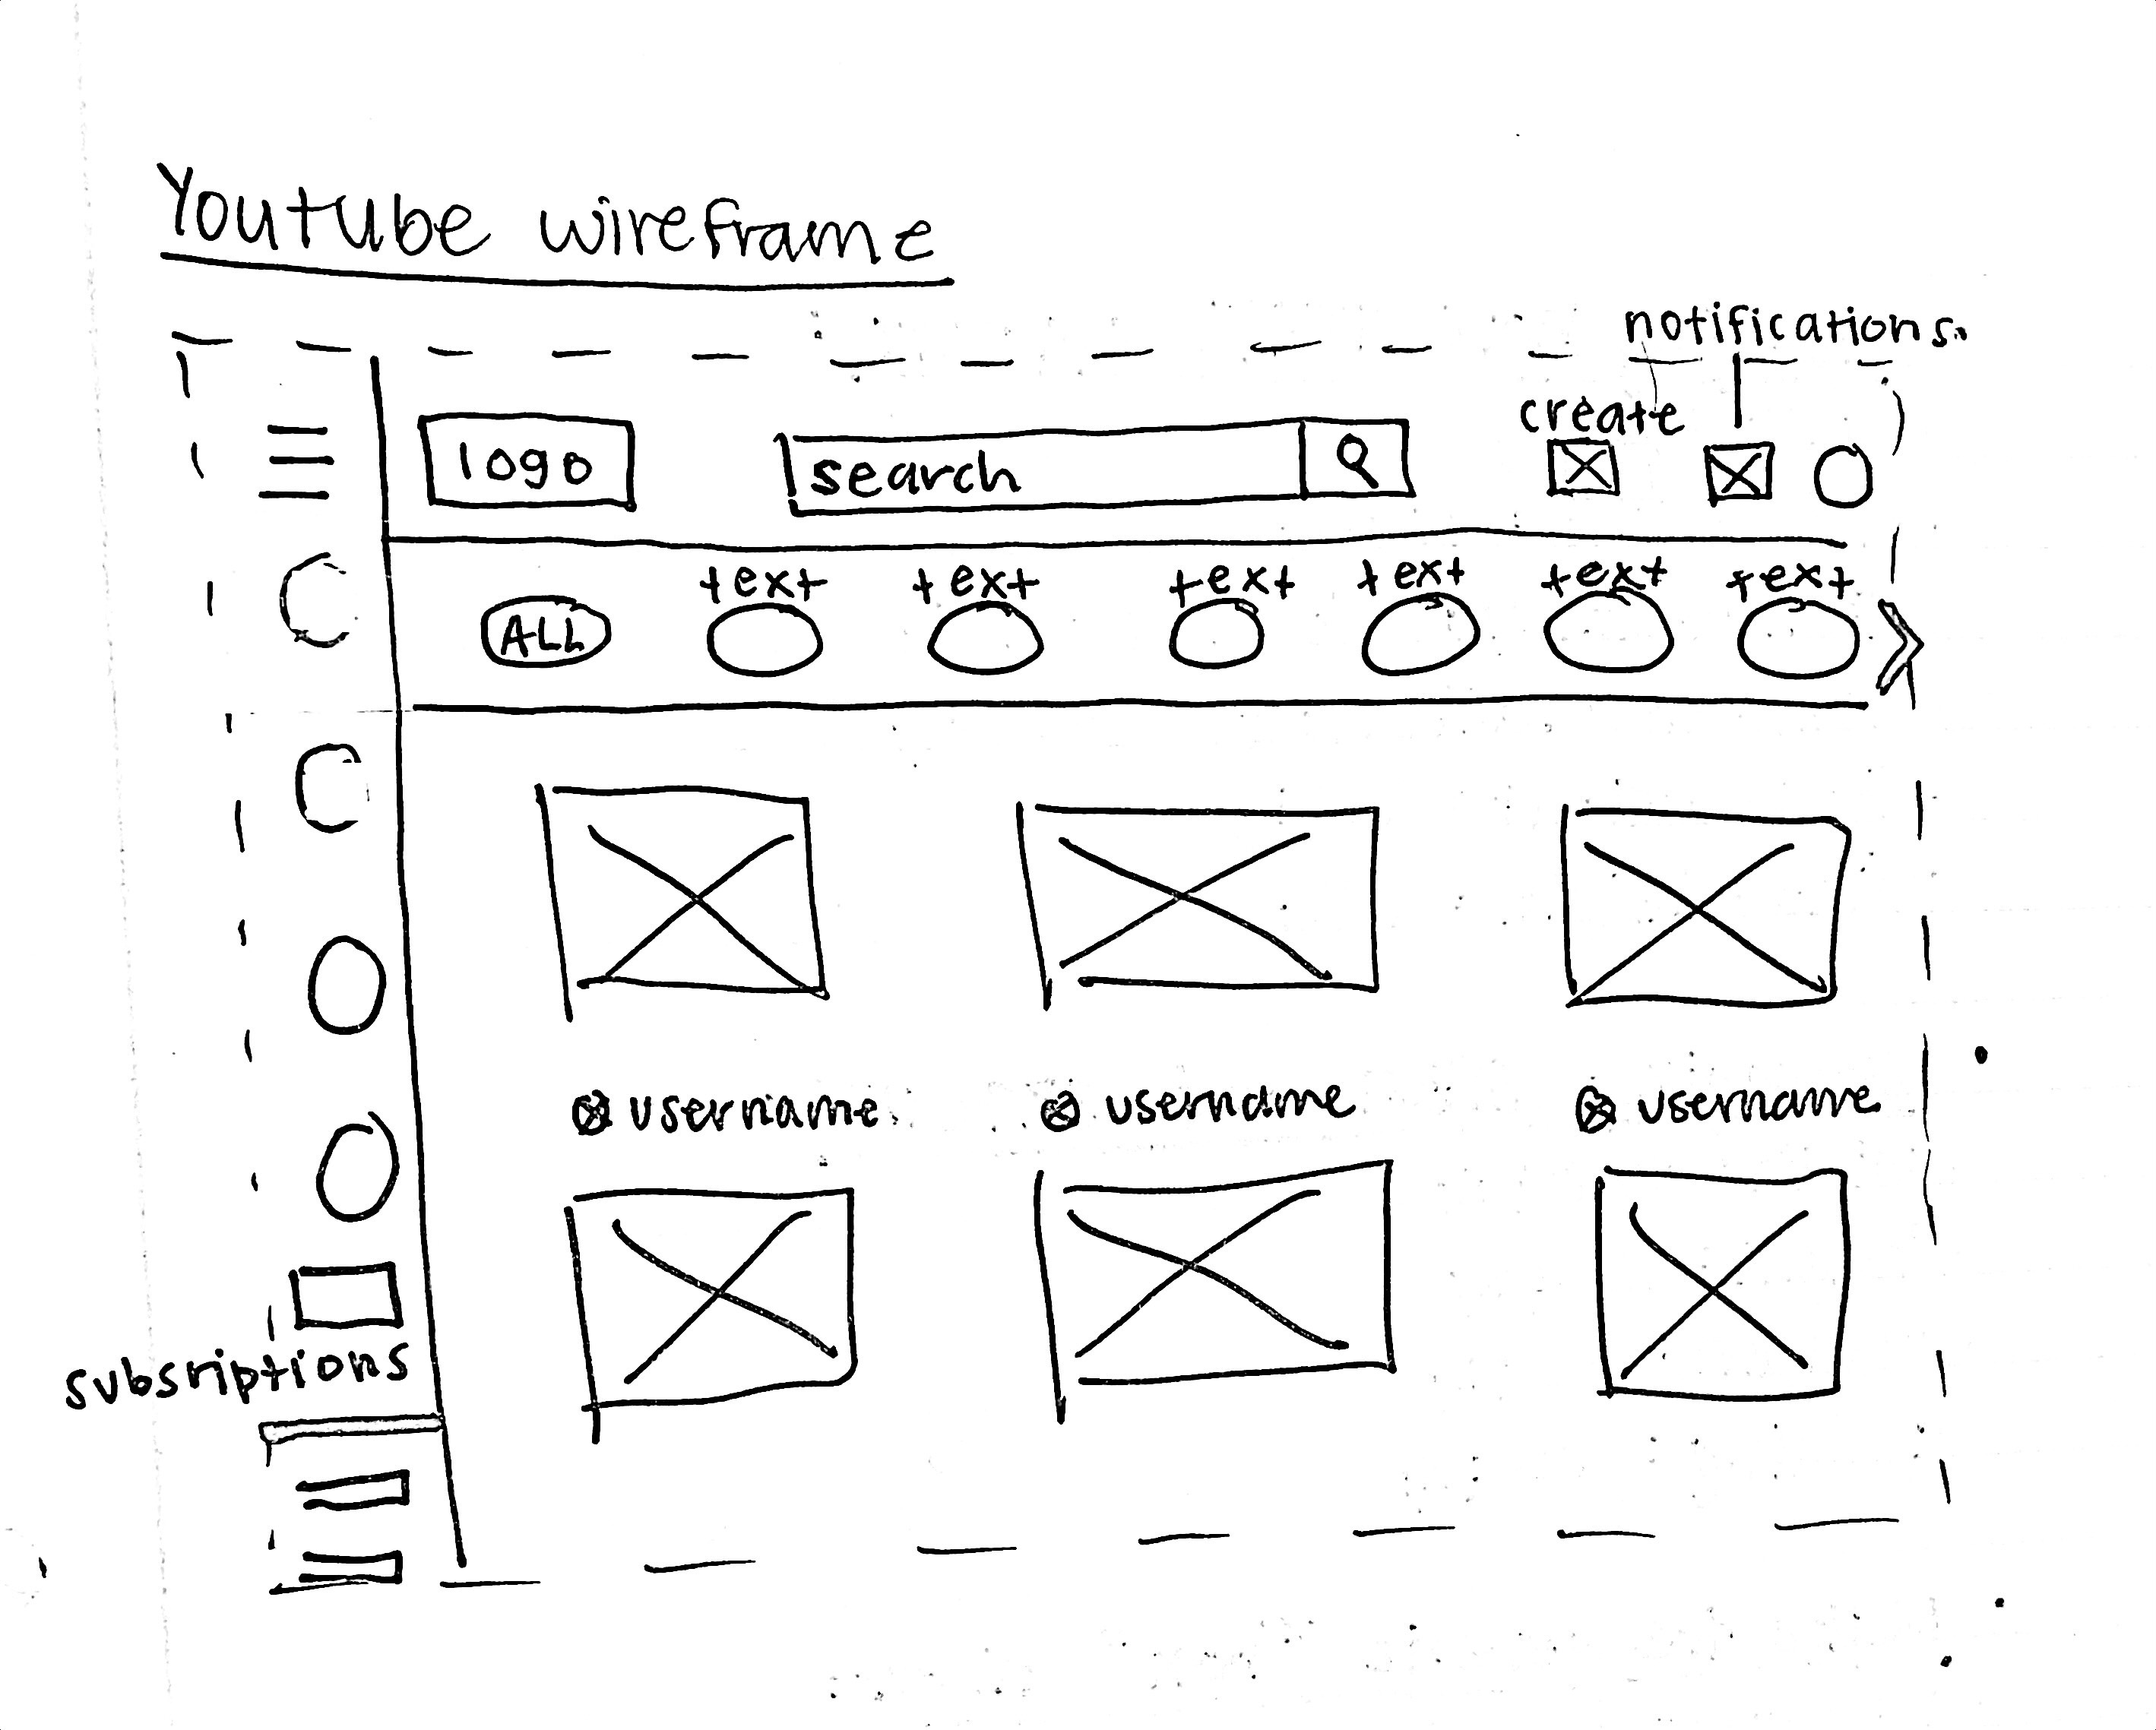 Youtube wireframe
notifications.
create
logo
search
text text text text text text
ALL
username username username
subsriptions